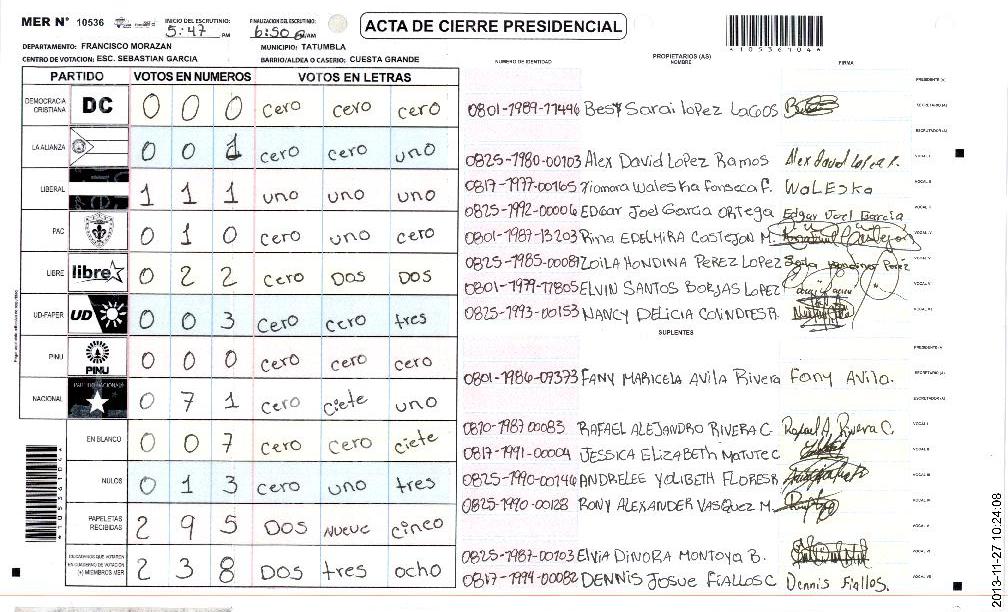 MER N° 10536 INICIO DEL ESCRUTINIO: 5:47 PM FINALIZACION DEL ESCRUTINIO: 6:50 AM
ACTA DE CIERRE PRESIDENCIAL
*10536104*
DEPARTAMENTO: FRANCISCO MORAZAN MUNICIPIO: TATUMBLA
CENTRO DE VOTACION: ESC. SEBASTIAN GARCIA BARRIO/ALDEA O CASERIO: CUESTA GRANDE
NUMERO DE IDENTIDAD PROPIETARIOS (AS) NOMBRE FIRMA
PARTIDO VOTOS EN NUMEROS VOTOS EN LETRAS
DEMOCRACIA CRISTIANA DC 0 0 0 cero cero cero
LA ALIANZA 0 0 1 cero cero uno
LIBERAL 1 1 1 uno uno uno
PAC 0 1 0 cero uno cero
LIBRE libre 0 2 2 cero DOS DOS
UD-FAPER UD 0 0 3 cero cero tres
PINU PINU 0 0 0 cero cero cero
NACIONAL 0 7 1 cero ciete uno
EN BLANCO 0 0 7 cero cero ciete
NULOS 0 1 3 cero uno tres
PAPELETAS RECIBIDAS 2 9 5 DOS NUEVE cinco
CIUDADANOS QUE VOTARON EN CUADERNO DE VOTACION (+) MIEMBROS MER 2 3 8 DOS tres ocho
PRESIDENTE (A)
0801-1989-11446 Besy Sarai Lopez Lagos SECRETARIO (A)
ESCRUTADOR (A)
0825-1980-00103 Alex David Lopez Ramos Alex david Lopez R. VOCAL I
0817-1977-00165 Xiomara Waleska Fonseca F. WaLESKa VOCAL II
0825-1992-00006 EDGar Joel Garcia ORTega Edgar Joel Garcia VOCAL III
0801-1987-13203 Rina EDELMIRA CASTEJON M. VOCAL IV
0825-1985-00087 ZOILA HONDINA PEREZ LOPEZ VOCAL V
0801-1979-17805 ELVIN SANTOS BORJAS LOPEZ VOCAL VI
0825-1993-00153 NANCY DELICIA COVINDTES R. VOCAL VII
SUPLENTES
PRESIDENTE (A)
0801-1986-07373 FANY MARICELA AVILA Rivera Fany Avila. SECRETARIO (A)
ESCRUTADOR (A)
0810-1987 00083 RAFAEL ALEJANDRO RIVERA C. Rafael A Rivera C. VOCAL I
0817-1991-00004 JESSICA ELIZABETH MATUTE C VOCAL II
0825-1990-00146 ANDRELEE YOLIBETH FLORES R VOCAL III
0825-1990-00128 RONY ALEXANDER VASQUEZ M. VOCAL IV
VOCAL V
0825-1987-00103 Elvia DINORA MONTOYA B. VOCAL VI
0817-1994-00082 DENNIS JOSUE FIALLOS C Dennis Fiallos. VOCAL VII
*10536104*
2013-11-27 10:24:08